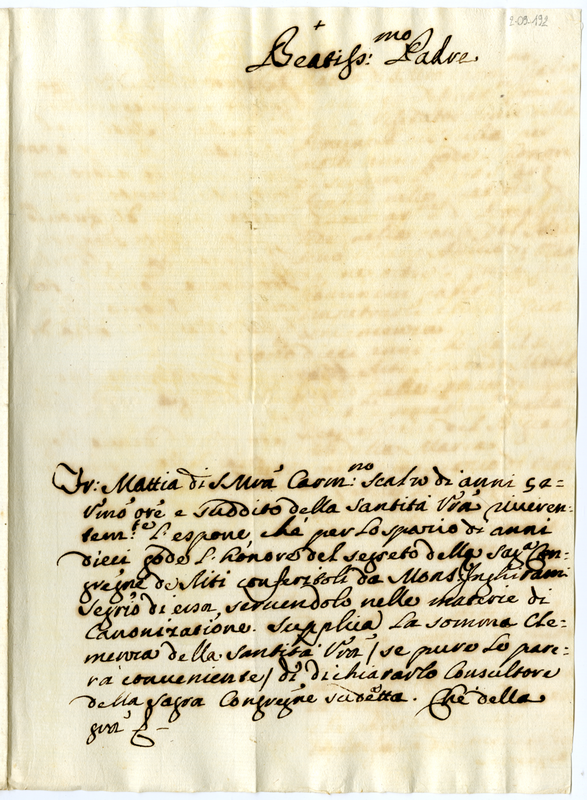 2-09-192
+
Beatiss:mo Padre
Fr: Mattia di S. Mrã Carm:no Scalzo di anni 52
umo ore e suddito della Santità Vrã riveren=
tem:te L'espone, che per lo spazio di anni
dieci gode l'honore del segreto della Sag:a Con=
gregne de Riti conferitoli da Mons: Inghirami
Segrio di essa, servendolo nelle materie di
Canonizatione. Supplica la somma Cle=
menza della Santità Vrã / se pure le pare=
ra conveniente / di dichiararlo Consultore
della Sagra Congregne sudetta. Che della
grã &